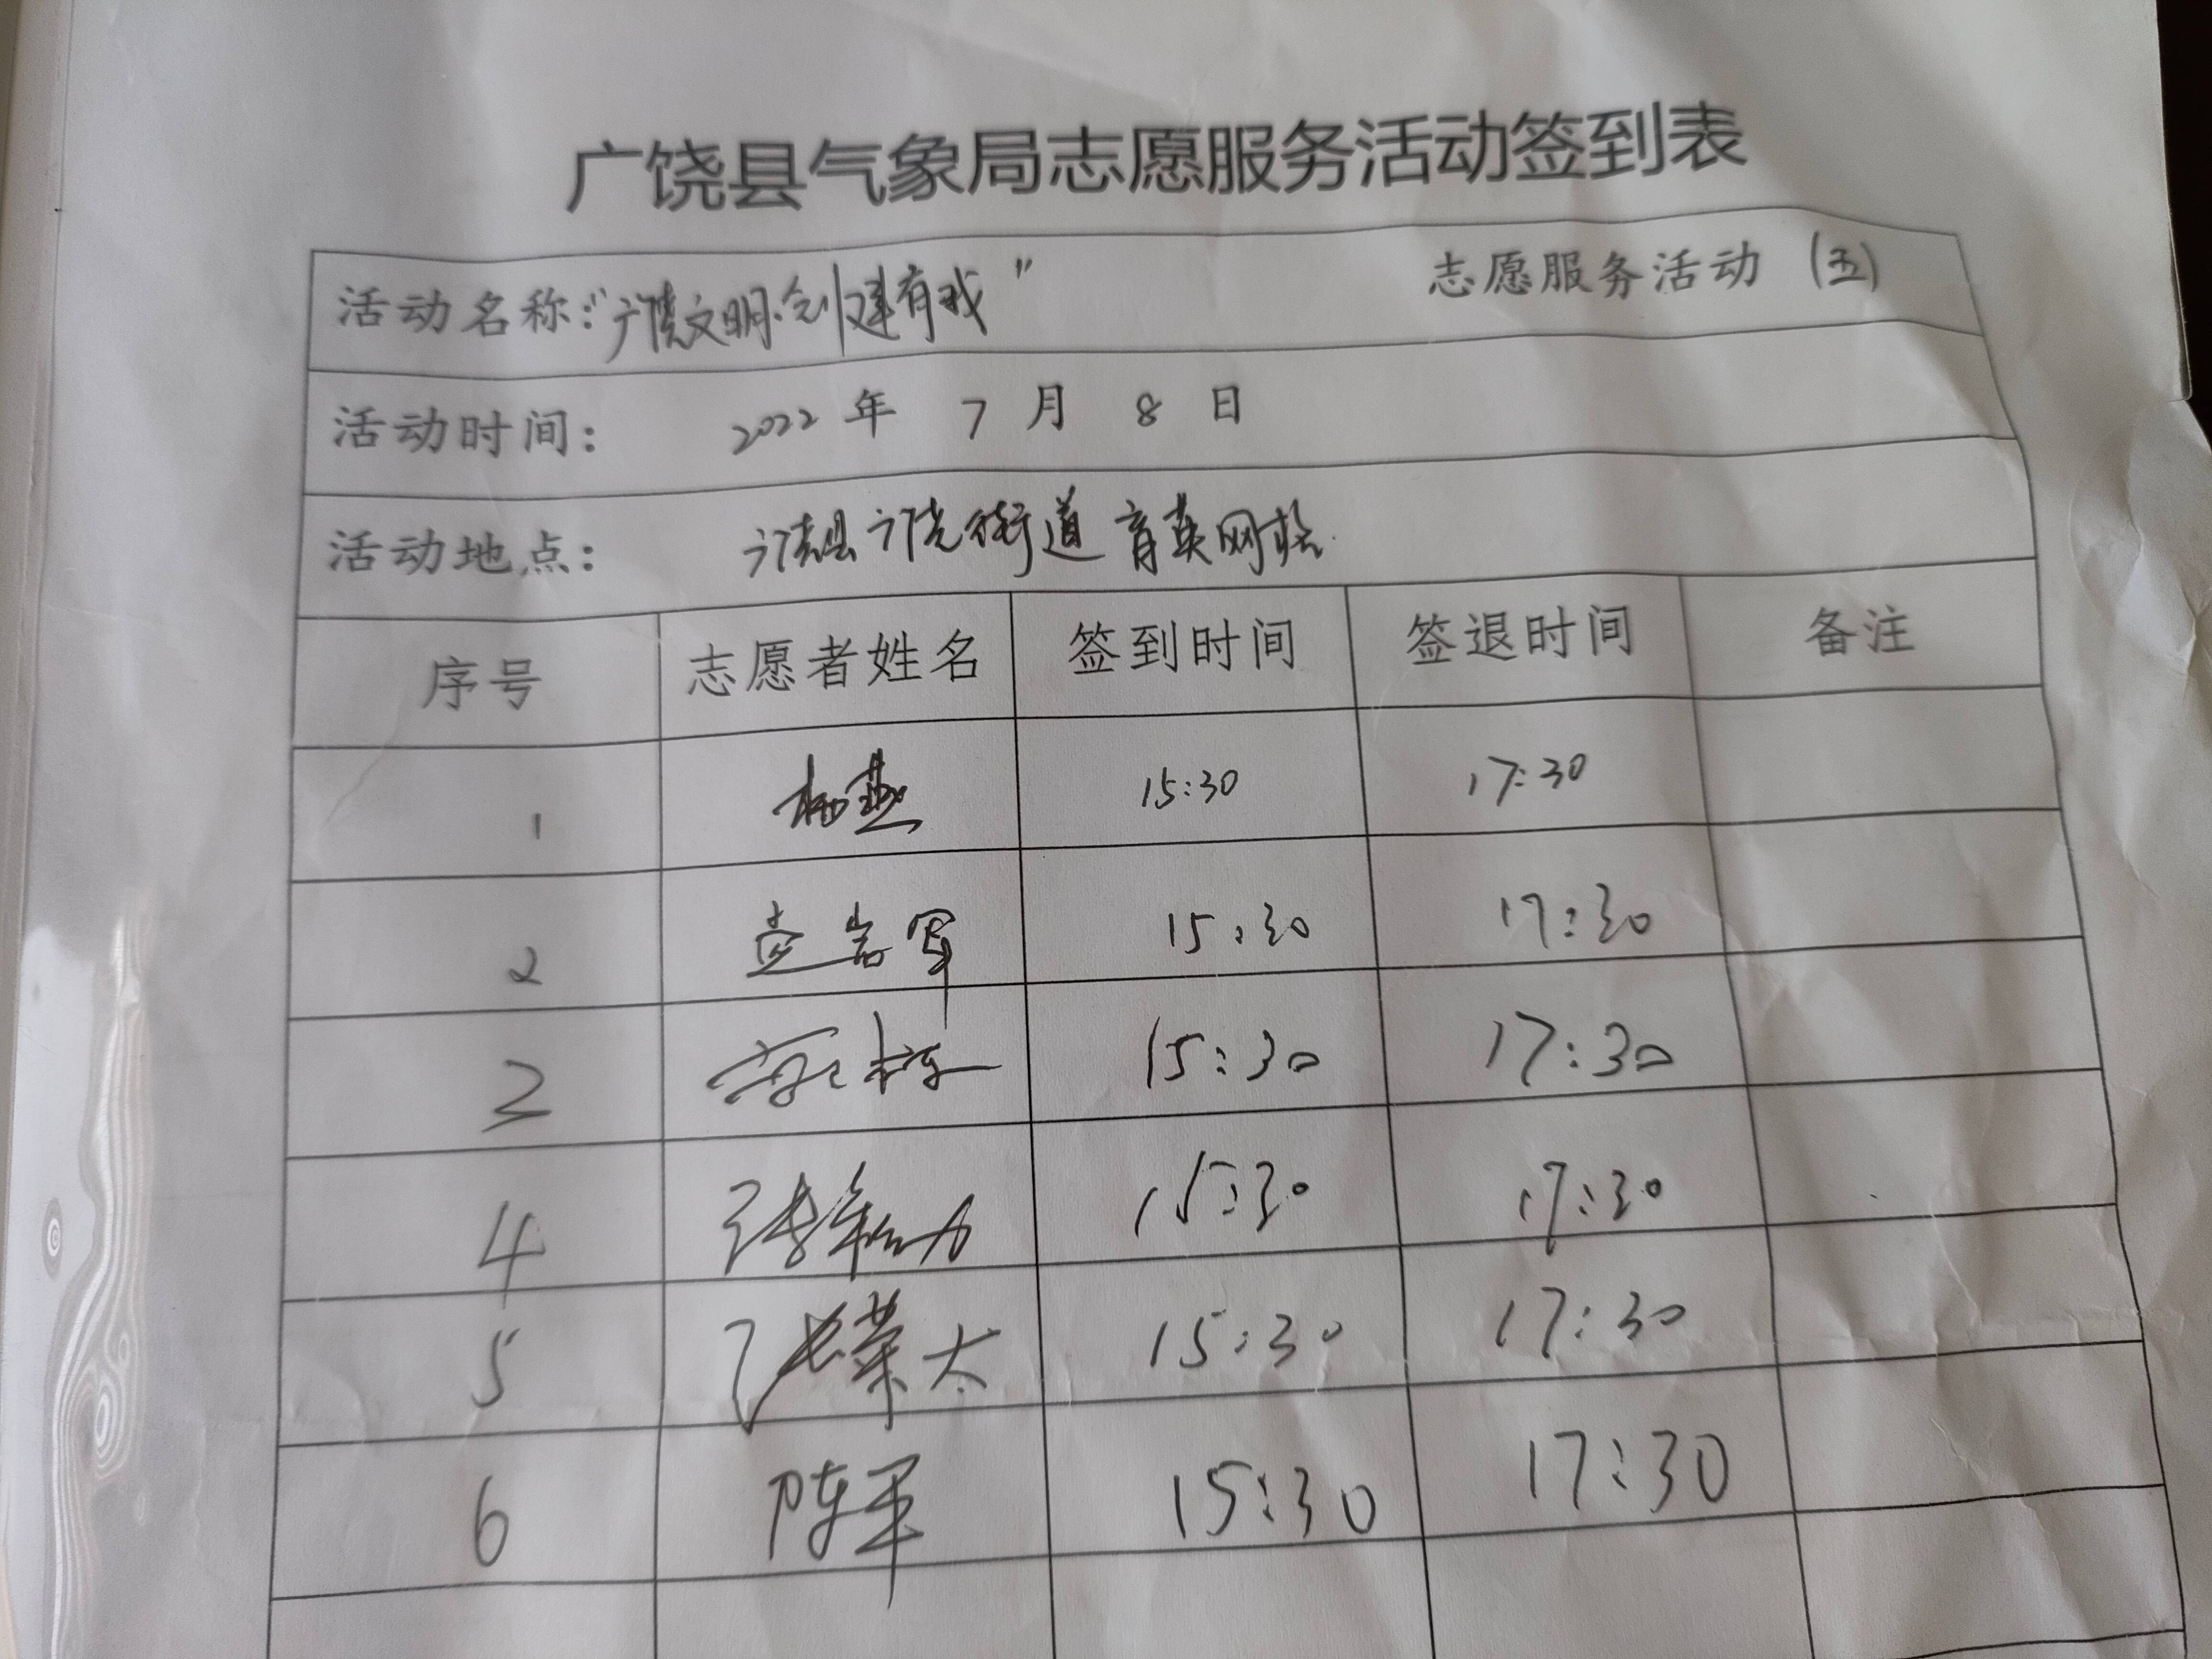 广饶县气象局志愿服务活动签到表
活动名称：“广饶文明·创建有我” 志愿服务活动（五）
活动时间： 2022 年 7 月 8 日
活动地点： 广饶县广饶街道育英网格
序号 志愿者姓名 签到时间 签退时间 备注
1 15:30 17:30
2 15:30 17:30
3 15:30 17:30
4 15:30 17:30
5 张荣太 15:30 17:30
6 陈军 15:30 17:30